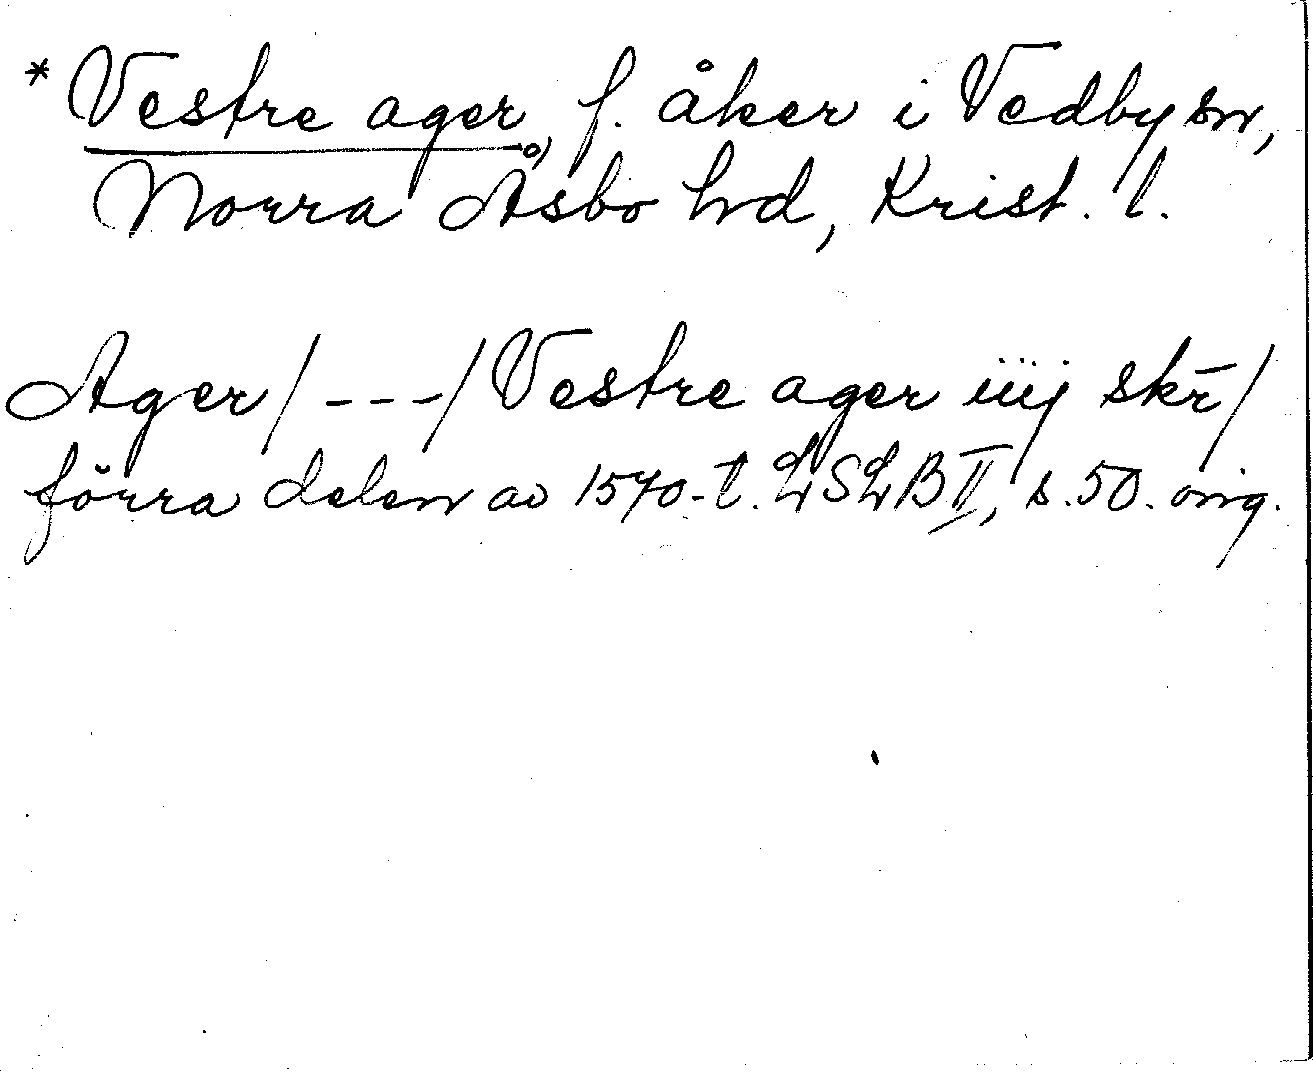 * Vestre ager, f. åker i Vedby sn,
Norra Åsbo hd, Krist. l.
Ager/---/Vestre ager iiij skr̄/
förra delen av 1570-t. LSLB II, s. 50. orig.